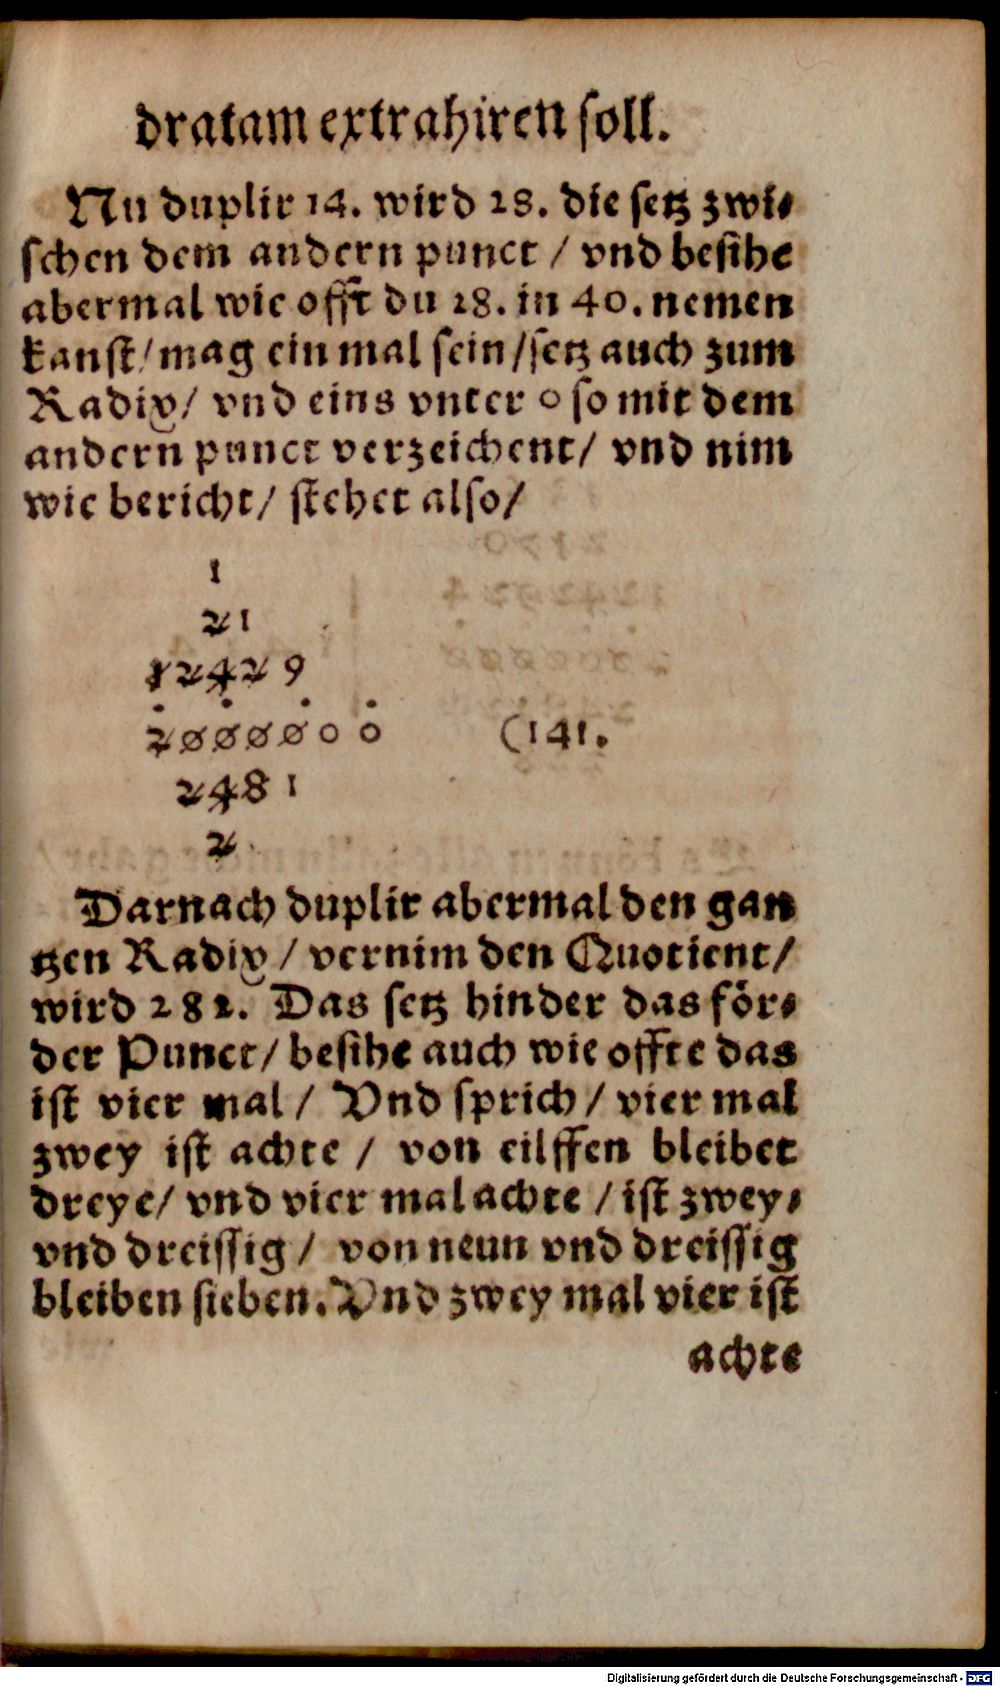 dratam extrahiren soll.
Nu duplir 14. wird 28. die setz zwi⸗
schen dem andern punct / vnd besihe
abermal wie offt du 28. in 40. nemen
kanst / mag ein mal sein / setz auch zum
Radix / vnd eins vnter 0 so mit dem
andern punct verzeichent / vnd nim
wie bericht / stehet also /
1
21
12429
2000000 (141.
2481
2
Darnach duplir abermal den gan
tzen Radix / vernim den Quotient /
wird 282. Das setz hinder das för⸗
der Punct / besihe auch wie offte das
ist vier mal / Vnd sprich / vier mal
zwey ist achte / von eilffen bleibet
dreye / vnd vier mal achte / ist zwey⸗
vnd dreissig / von neun vnd dreissig
bleiben sieben. Vnd zwey mal vier ist
achte
Digitalisierung gefördert durch die Deutsche Forschungsgemeinschaft - DFG